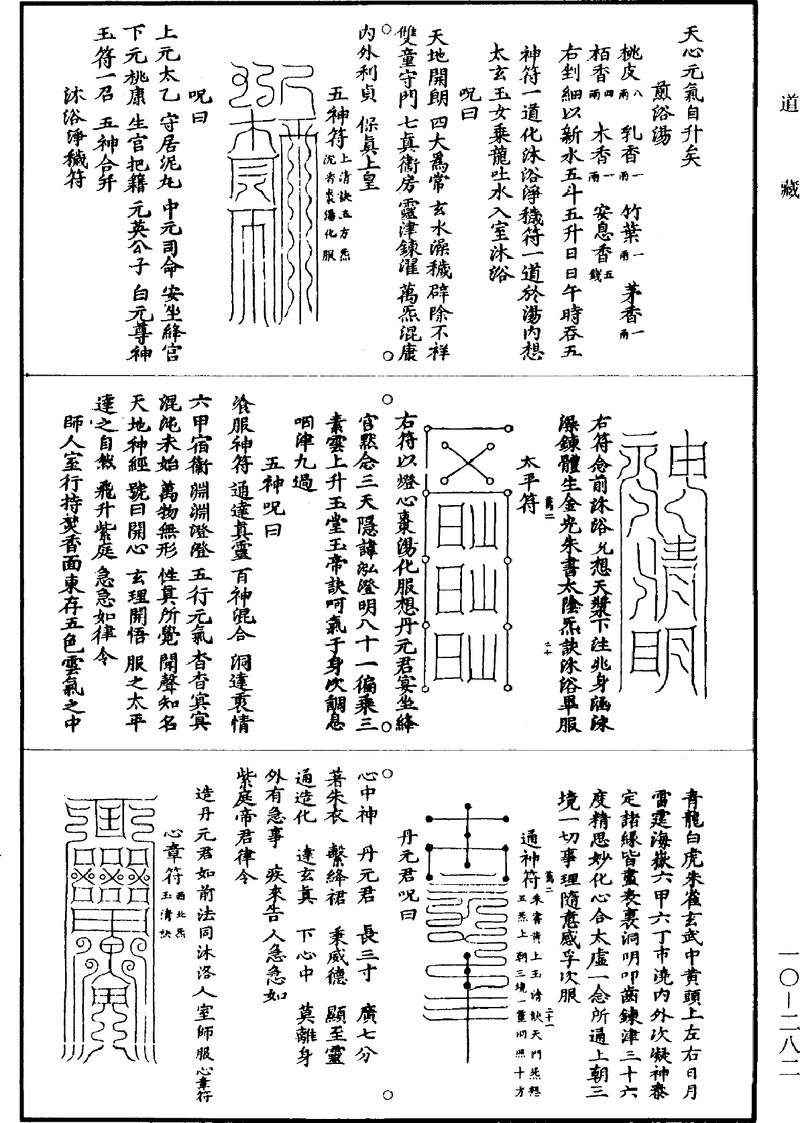 道藏
天心元氣自升矣
煎浴湯
桃皮八兩 乳香一兩 竹葉一兩 茅香一兩
栢香四兩 木香一兩 安息香五錢
右剉細以新水五斗五升日日午時吞五
神符一道化沐浴淨穢符一道於湯內想
太玄玉女乘龍吐水入室沐浴
呪曰
天地開朗 四大爲常 玄水澡穢 辟除不祥
雙童守門 七真衞房 靈津鍊濯 萬炁混康
內外利貞 保真上皇
五神符 上清訣五方炁 沈香棗湯化服
呪曰
上元太乙 守居泥丸 中元司命 安坐絳宮
下元桃康 生宮把籍 元英公子 白元尊神
玉符一召 五神合并
沐浴淨穢符
右符念前沐浴呪想天漿下注兆身滌
澡鍊體生金光朱書太陰炁訣沐浴畢服
太平符
右符以燈心棗湯化服想丹元君宴坐絳
宮默念三天隱諱泓澄明八十一徧乘三
素雲上升玉堂玉帝訣呵氣于身次調息
咽津九過
五神呪曰
飡服神符 通達真靈 百神混合 洞達衷情
六甲宿衞 淵淵澄澄 五行元氣 杳杳冥冥
混沌未始 萬物無形 性真所覺 聞聲知名
天地神經 號曰開心 玄理開悟 服之太平
達之自然 飛升紫庭 急急如律令
師人室行持焚香面東存五色雲氣之中
青龍白虎朱雀玄武中黃頭上左右日月
雷霆海嶽六甲六丁帀遶內外次凝神泰
定諸緣皆盡表裏洞明叩齒鍊津三十六
度精思妙化心合太虛一念所通上朝三
境一切事理隨意感孚次服
通神符 朱書黃上玉清訣天門炁想 五炁上朝三境一靈洞照十方
丹元君呪曰
心中神 丹元君 長三寸 廣七分
著朱衣 繫絳裙 秉威德 顯至靈
通造化 達玄真 下心中 莫離身
外有急事 疾來告人急急如
紫庭帝君律令
造丹元君如前法同沐洛人室師服心章符
心章符 西北炁 玉清訣
一〇—二八二